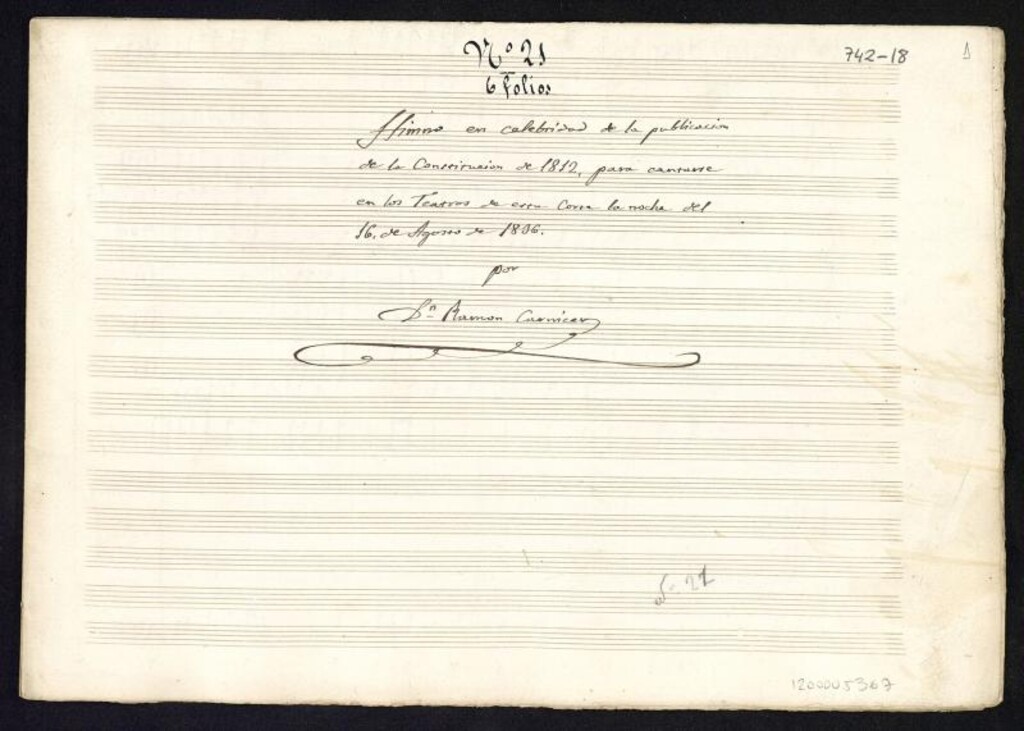 Nº 21
742-18
1
6 Folios
Himno en celebridad de la publicacion
de la Constitucion de 1812, para cantarse
en los Teatros de esta Corte la noche del
16, de Agosto de 1836.
por
Dn. Ramon Carnicer
21
1200005367